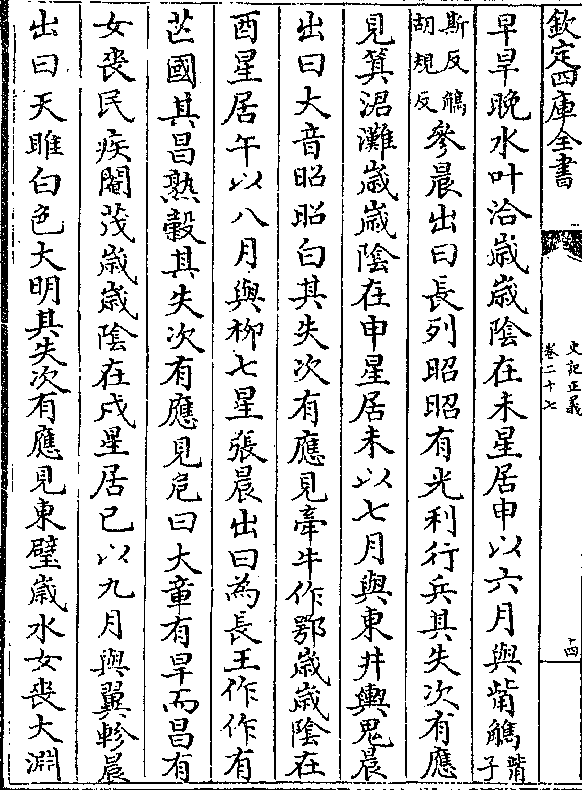 欽定四庫全書
史記正義
卷二十七
十四
早旱晚水叶洽歲歲陰在未星居申以六月與觜觿觜子
斯反觿
胡規反
參晨出曰長列昭昭有光利行兵其失次有應
見箕涒灘歲歲陰在申星居未以七月與東井輿鬼晨
出曰大音昭昭白其失次有應見牽牛作鄂歲歲陰在
酉星居午以八月與柳七星張晨出曰為長王作作有
芒國其昌熟穀其失次有應見危曰大章有旱而昌有
女喪民疾閹茂歲歲陰在戌星居巳以九月與翼軫晨
出曰天睢白色大明其失次有應見東壁歲水女喪大淵